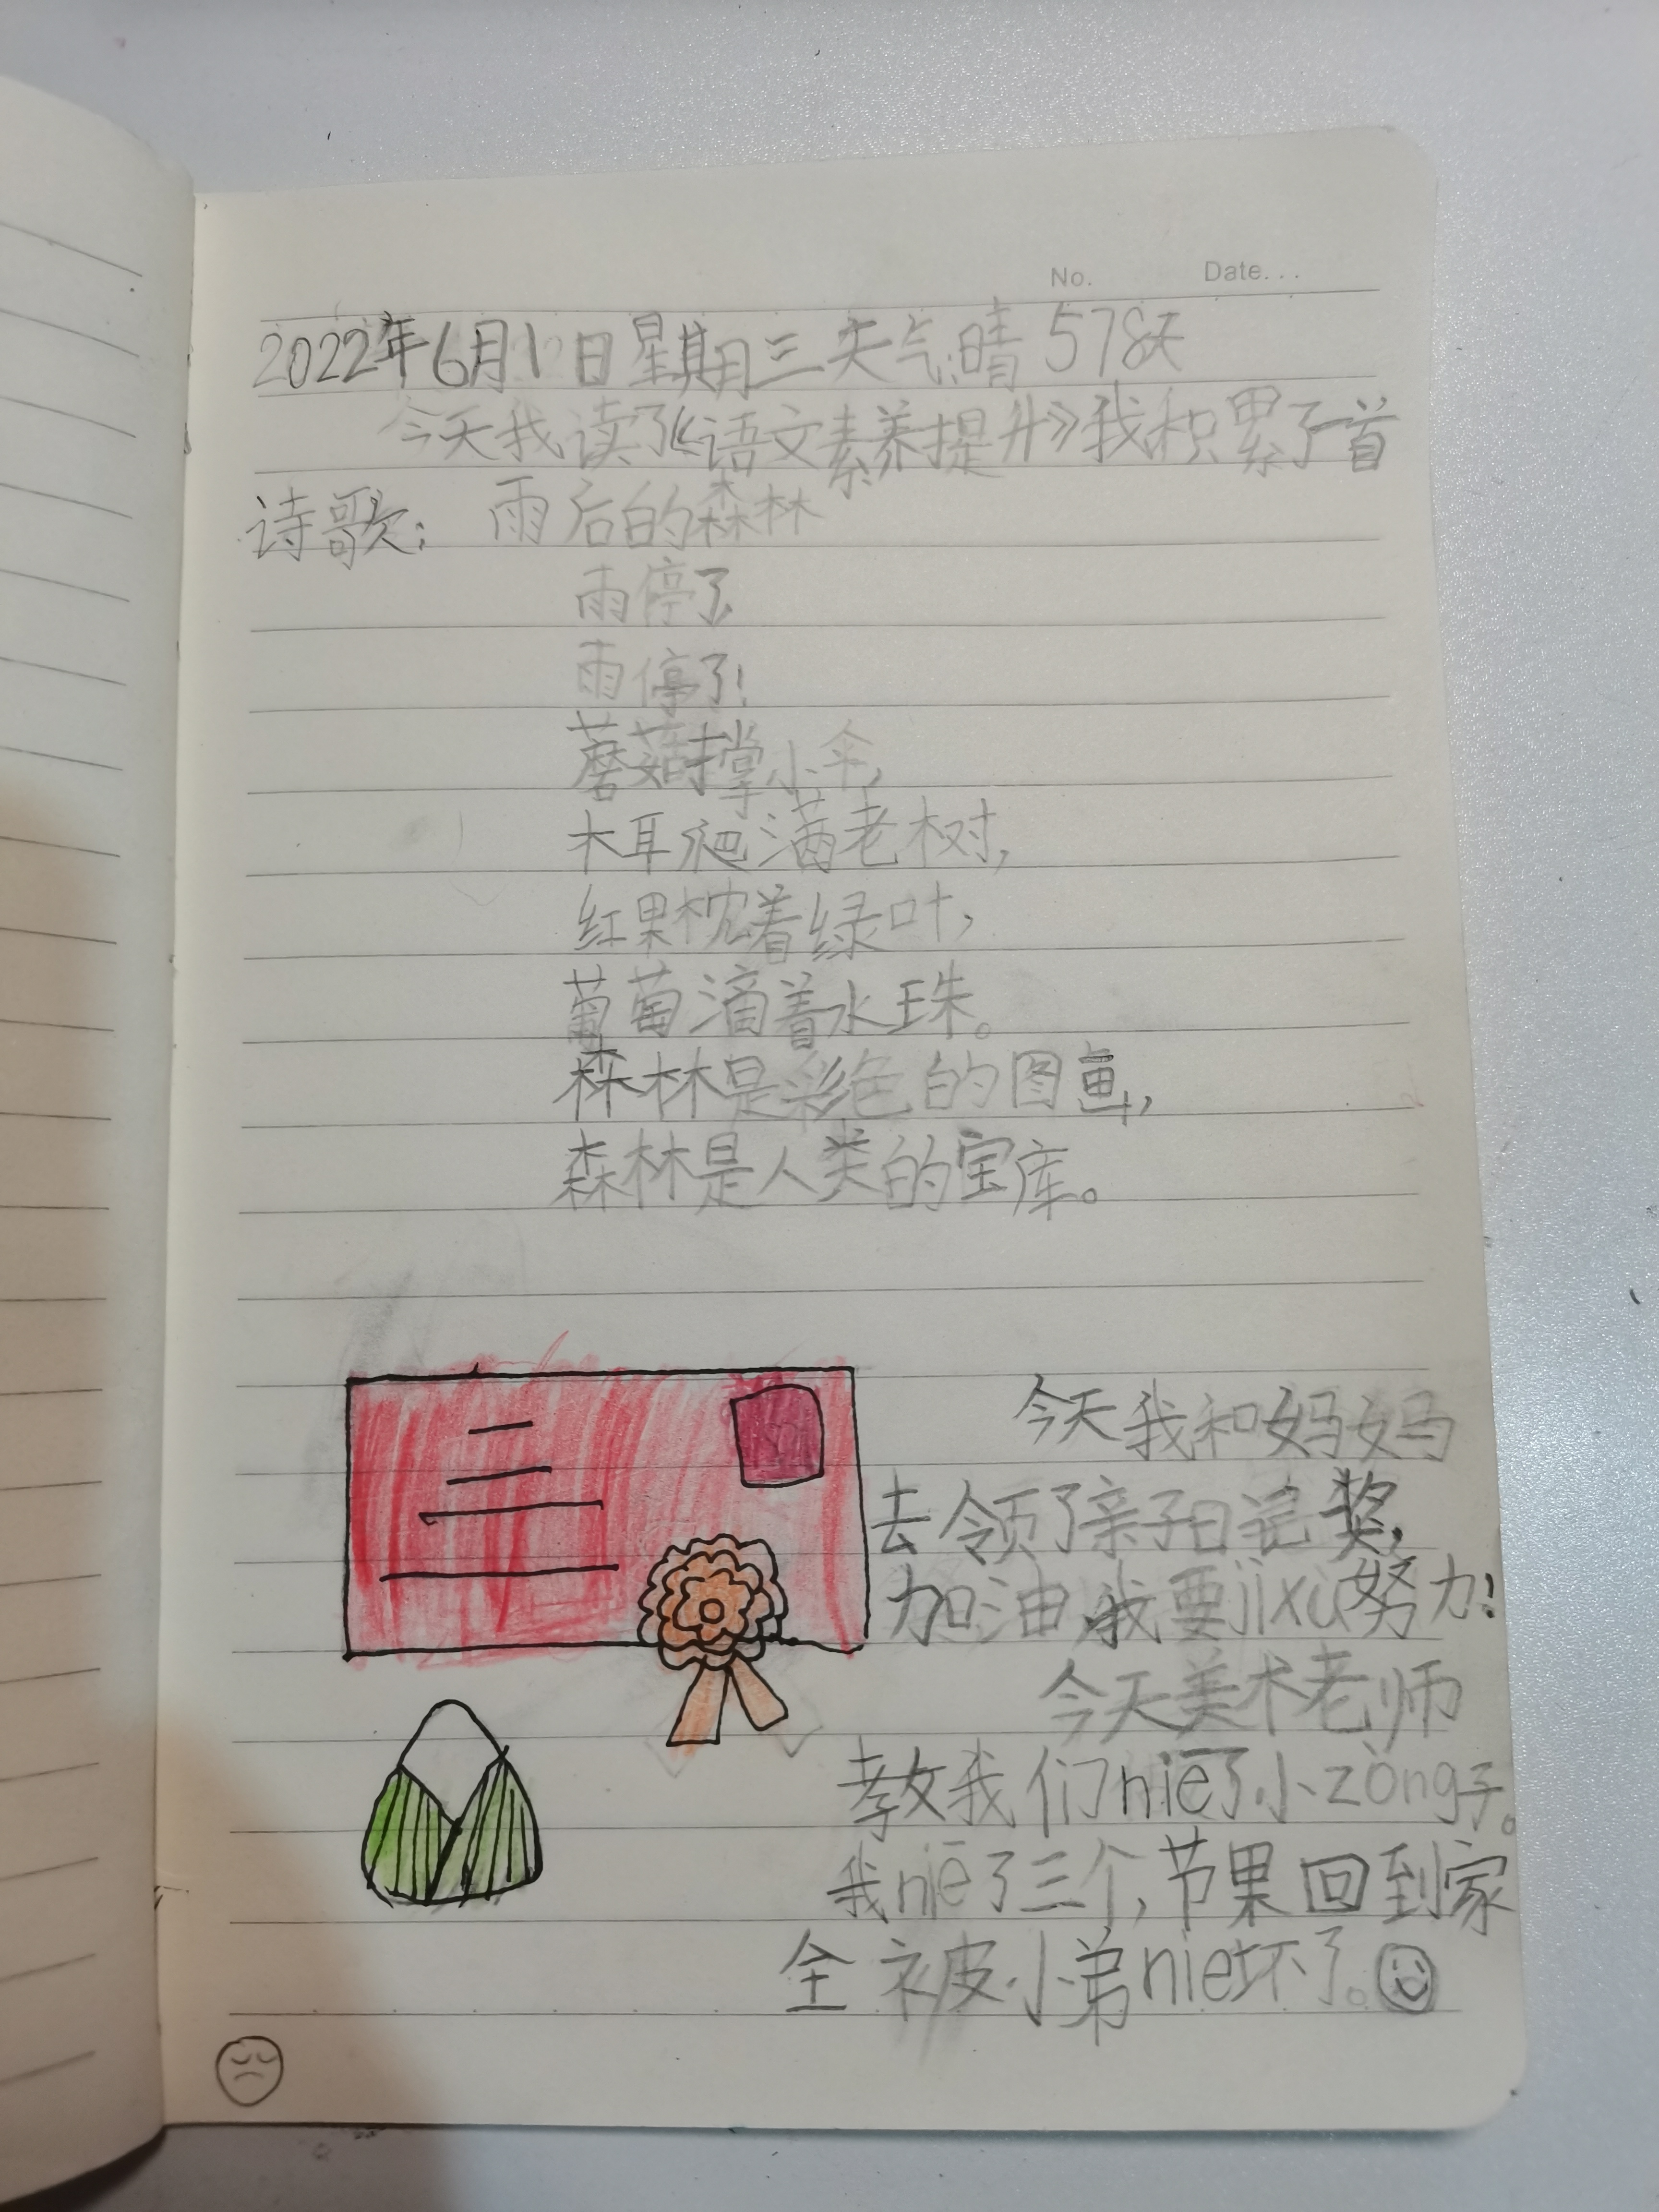 No. Date...
2022年6月1日星期三天气晴 578天
今天我读了《语文素养提升》我积累了一首
诗歌: 雨后的森林
雨停了
雨停了!
蘑菇撑小伞,
木耳爬满老树,
红果枕着绿叶,
葡萄滴着水珠。
森林是彩色的图画,
森林是人类的宝库。
今天我和妈妈
去领了亲子日记奖,
加油我要jixu努力!
今天美术老师
教我们niē了小zòng子。
我niē了三个,节果回到家
全被小弟nie坏了。